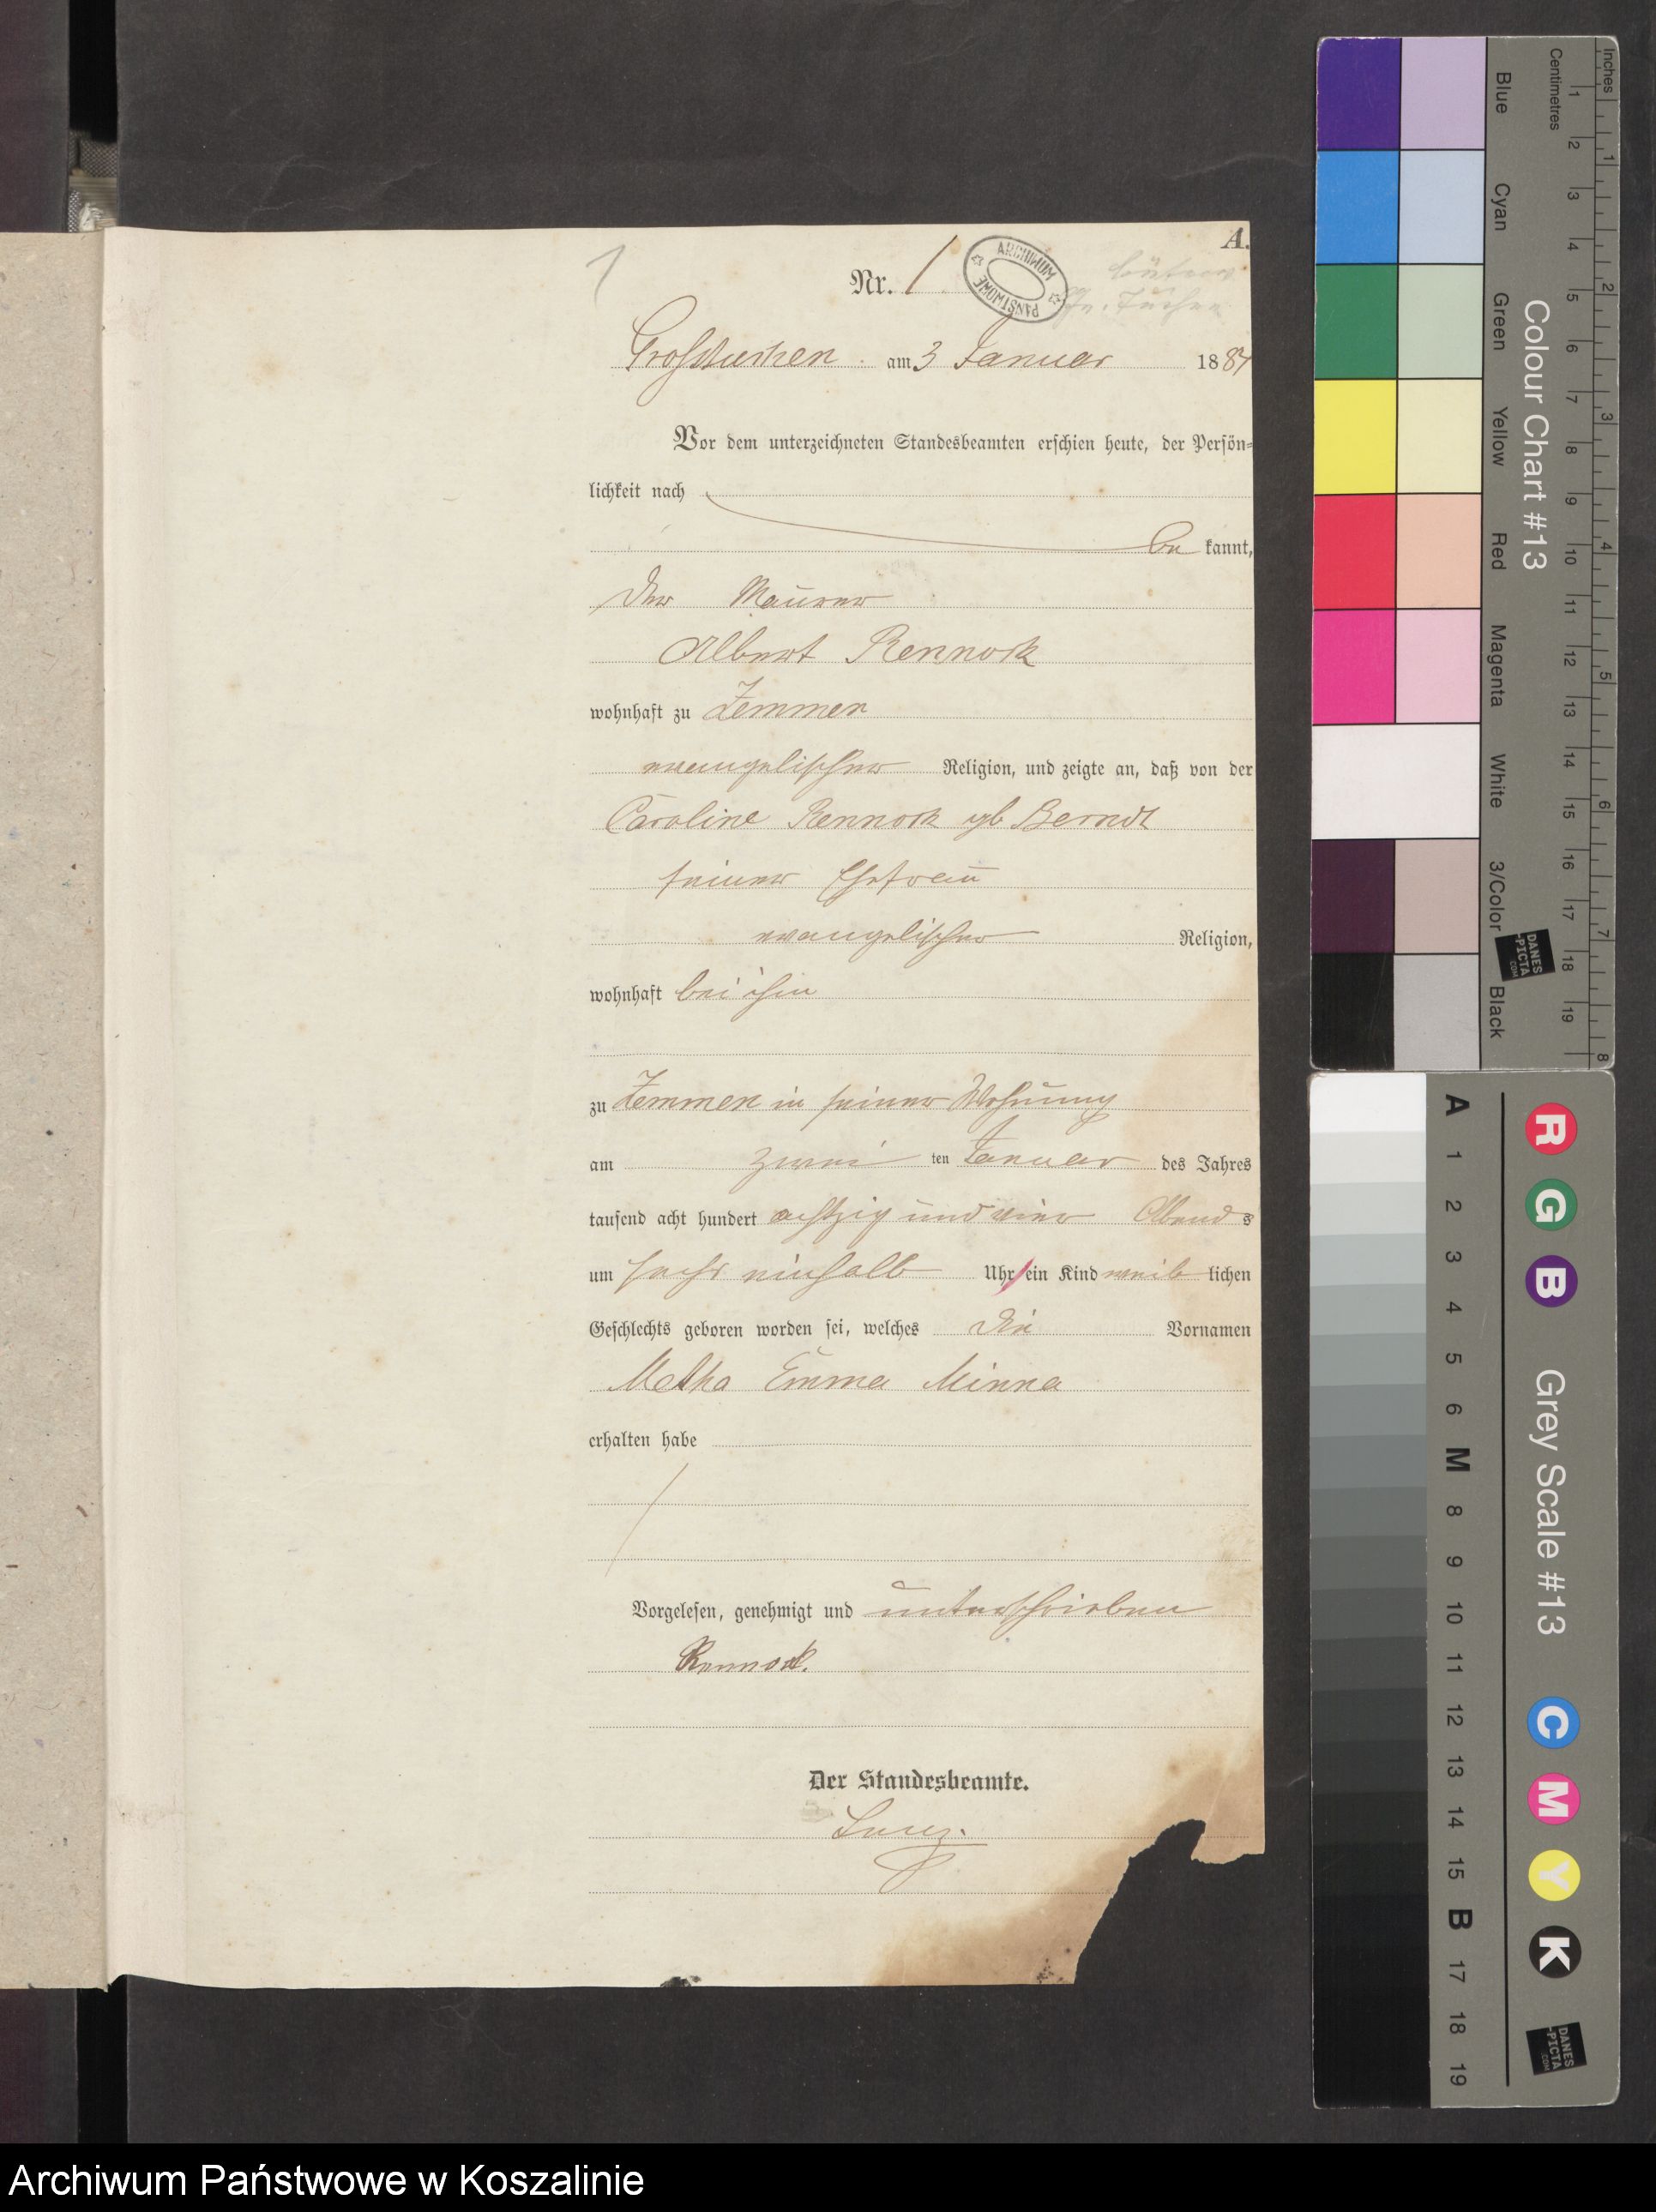 A.
1
Nr. 1
ARCHIWUM PAŃSTWOWE
Bütow
Gr. Tuchen
Grosstuchen am 3 Januar 1884
Vor dem unterzeichneten Standesbeamten erschien heute, der Persön-
lichkeit nach
be kannt,
der Maurer
Albert Rennock
wohnhaft zu Zemmen
evangelischer Religion, und zeigte an, daß von der
Caroline Rennock geb Berndt
seiner Ehefrau
evangelischer Religion,
wohnhaft bei ihm
zu Zemmen in seiner Wohnung
am zwei ten Januar des Jahres
tausend acht hundert achtzig und vier Abend s
um sechs einhalb Uhr ein Kind weib lichen
Geschlechts geboren worden sei, welches die Vornamen
Emma Minna
erhalten habe
Vorgelesen, genehmigt und unterschrieben
Rennock.
Der Standesbeamte.
Inches
Centimetres
1 2 3 4 5 6 7 8 9 10 11 12 13 14 15 16 17 18 19
1 2 3 4 5 6 7 8
Colour Chart #13
Blue Cyan Green Yellow Red Magenta White 3/Color Black
DANES
-PICTA
.COM
A 1 2 3 4 5 6 M 8 9 10 11 12 13 14 15 B 17 18 19
Grey Scale #13
R G B
C M Y K
DANES
-PICTA
.COM
Archiwum Państwowe w Koszalinie